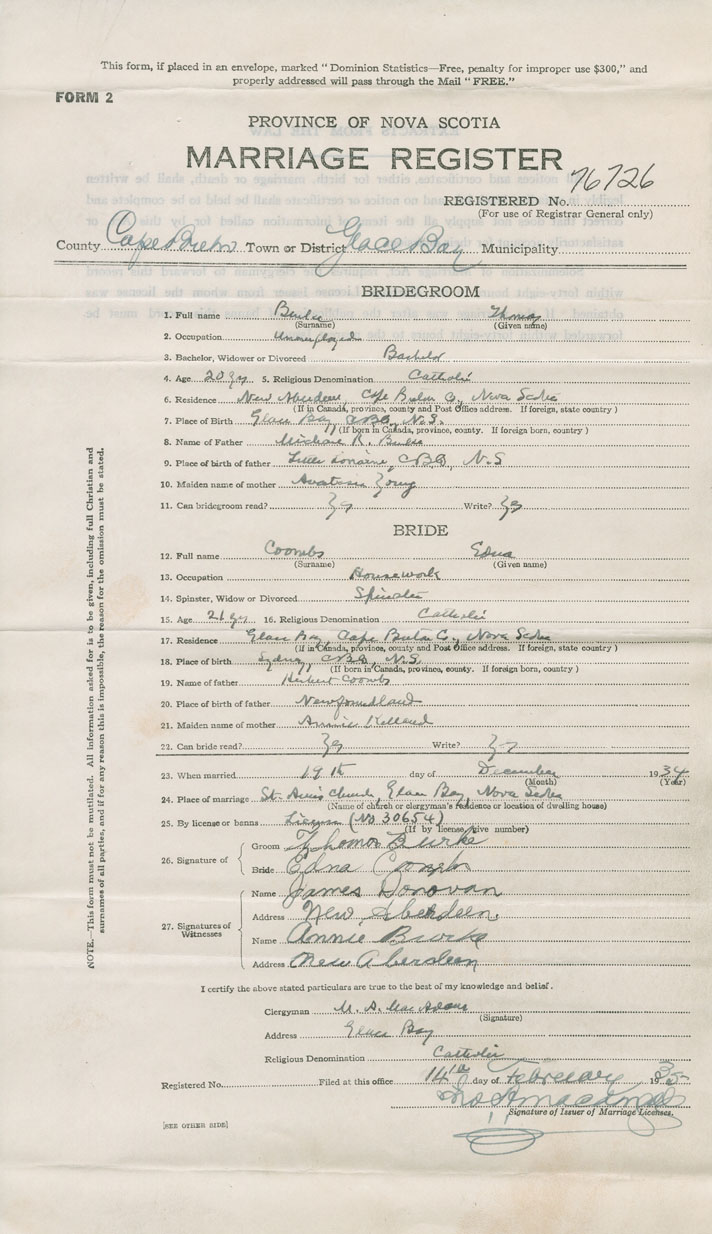 This form, if placed in an envelope, marked " Dominion Statistics—Free, penalty for improper use $300," and
properly addressed will pass through the Mail "FREE."
FORM 2
PROVINCE OF NOVA SCOTIA
MARRIAGE REGISTER
REGISTERED No. 76726
(For use of Registrar General only)
County Cape Breton Town or District Glace Bay Municipality
BRIDEGROOM
1. Full name Burke Thomas
(Surname) (Given name)
2. Occupation Unemployed
3. Bachelor, Widower or Divorced Bachelor
4. Age 20 yrs 5. Religious Denomination Catholic
6. Residence New Aberdeen, Cape Breton Co., Nova Scotia
(If in Canada, province, county and Post Office address. If foreign, state country )
7. Place of Birth Glace Bay, CBCo, N.S.
(If born in Canada, province, county. If foreign born, country )
8. Name of Father R. Burke
9. Place of birth of father Little Lorraine, CBCo, N.S
10. Maiden name of mother Anastasia Young
11. Can bridegroom read? Yes Write? Yes
BRIDE
12. Full name Coombs Edna
(Surname) (Given name)
13. Occupation Housework
14. Spinster, Widow or Divorced Spinster
15. Age 21 yrs 16. Religious Denomination Catholic
17. Residence Glace Bay, Cape Breton Co., Nova Scotia
(If in Canada, province, county and Post Office address. If foreign, state country )
18. Place of birth Sydney, CBCo, N.S.
(If born in Canada, province, county. If foreign born, country )
19. Name of father Herbert Coombs
20. Place of birth of father Newfoundland
21. Maiden name of mother Annie Kelland
22. Can bride read? Yes Write? Yes
23. When married 19th day of December 1934
(Month) (Year)
24. Place of marriage St. Ann's Church, Glace Bay, Nova Scotia
(Name of church or clergyman's residence or location of dwelling house)
25. By license or banns License (No 30654)
(If by license, give number)
26. Signature of
Groom Thomas Burke
Bride Edna Coombs
27. Signatures of Witnesses
Name James Donovan
Address New Aberdeen.
Name Annie Burke
Address New Aberdeen
I certify the above stated particulars are true to the best of my knowledge and belief.
Clergyman M. A. MacAdam
(Signature)
Address Glace Bay
Religious Denomination Catholic
Registered No. Filed at this office 14th day of February 1935
Signature of Issuer of Marriage Licenses.
[SEE OTHER SIDE]
NOTE.—This form must not be mutilated. All information asked for is to be given, including full Christian and
surnames of all parties, and if for any reason this is impossible, the reason for the omission must be stated.